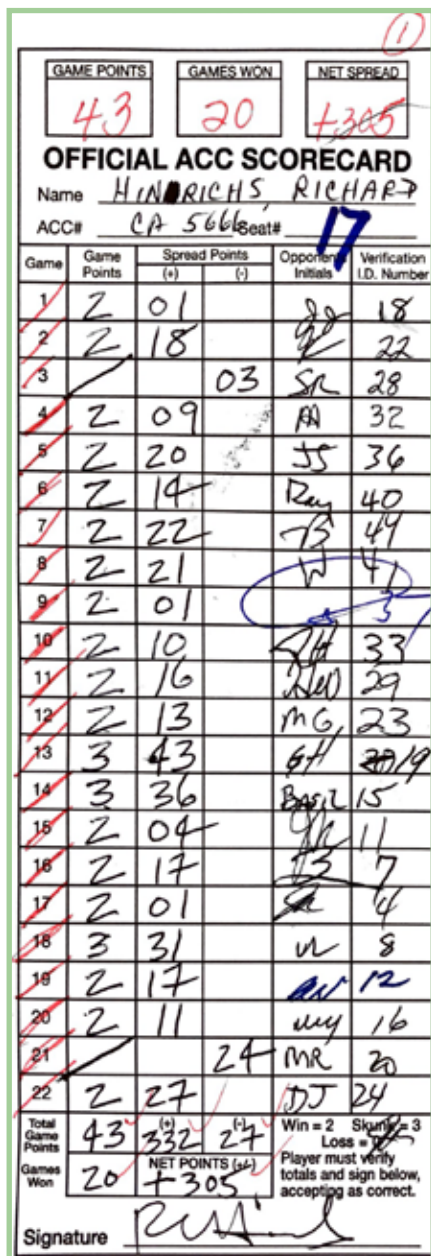 1
GAME POINTS GAMES WON NET SPREAD
43 20 +305
OFFICIAL ACC SCORECARD
Name HINDRICHS, RICHARD
ACC# CA 5666 Seat# 17
Game Game Points Spread Points (+) (-) Opponents Initials Verification I.D. Number
1 2 01 18
2 2 18 22
3 03 SR 28
4 2 09 AA 32
5 2 20 JS 36
6 2 14 Ray 40
7 2 22 49
8 2 21 W 41
9 2 01
10 2 10 33
11 2 16 29
12 2 13 MG 23
13 3 43 GH 19
14 3 36 15
15 2 04 11
16 2 17 7
17 2 01 4
18 3 31 8
19 2 17 12
20 2 11 16
21 24 MR 20
22 2 27 DJ 24
Total Game Points 43 (+) 332 (-) 27 Win = 2 Skunk = 3
Loss =
Games Won 20 NET POINTS (+/-) +305 Player must verify
totals and sign below,
accepting as correct.
Signature